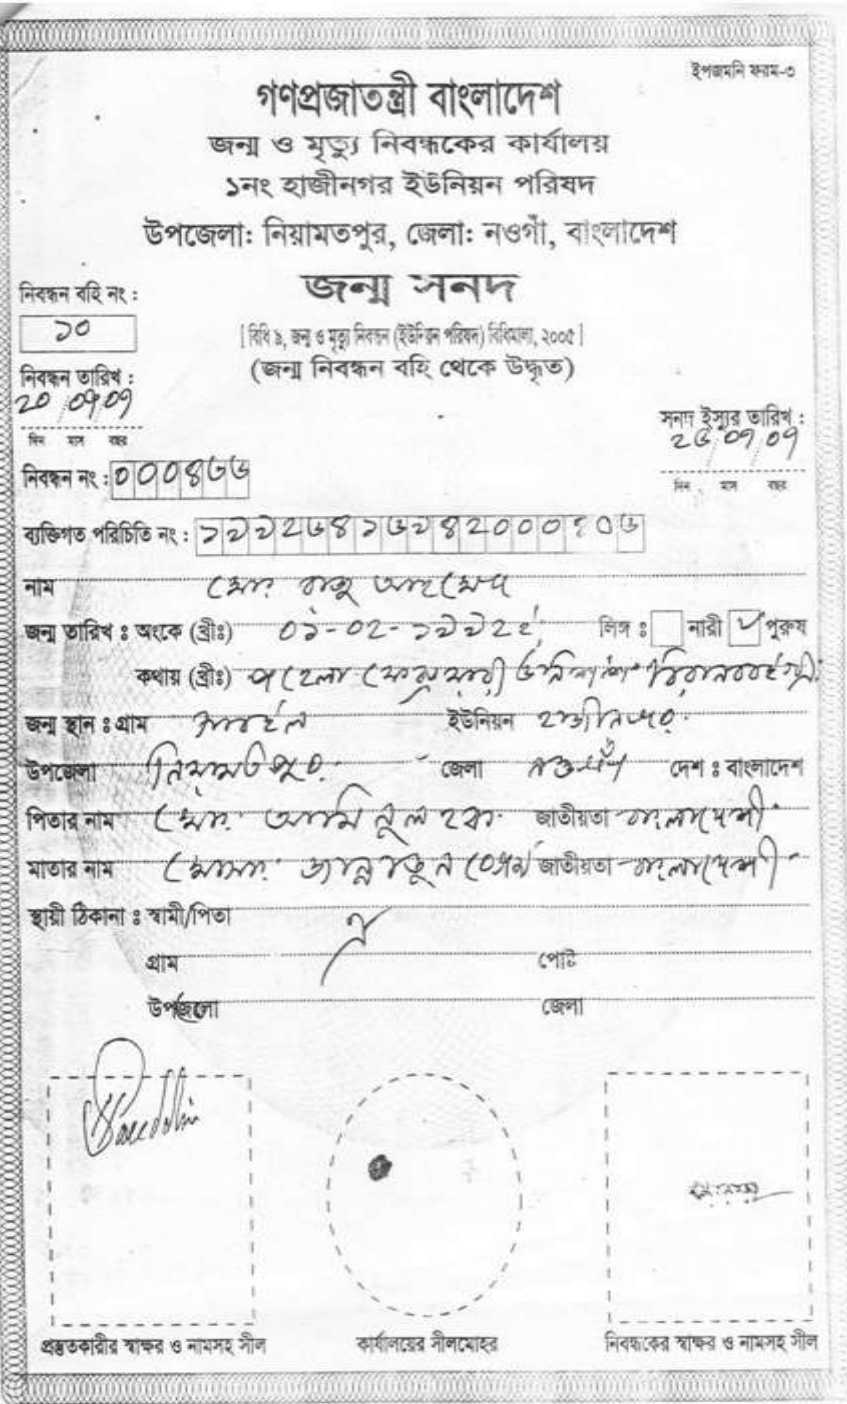 ইপজমনি ফরম-৩
গণপ্রজাতন্ত্রী বাংলাদেশ
জন্ম ও মৃত্যু নিবন্ধকের কার্যালয়
১নং হাজীনগর ইউনিয়ন পরিষদ
উপজেলাঃ নিয়ামতপুর, জেলাঃ নওগাঁ, বাংলাদেশ
জন্ম সনদ
[ বিধি ৯, জন্ম ও মৃত্যু নিবন্ধন (ইউনিয়ন পরিষদ) বিধিমালা, ২০০৫ ]
(জন্ম নিবন্ধন বহি থেকে উদ্ধৃত)
নিবন্ধন বহি নং :
১০
নিবন্ধন তারিখ :
২০/০৭/০৭
দিন মাস বছর
সনদ ইস্যুর তারিখ :
২৬/০৭/০৭
দিন মাস বছর
নিবন্ধন নং : ০০০৪৬৬
ব্যক্তিগত পরিচিতি নং :
নাম মোঃ বাবু আহমেদ
জন্ম তারিখ ঃ অংকে (খ্রীঃ) ০১-০২-১৯৯২ইং লিঙ্গ ঃ নারী পুরুষ
কথায় (খ্রীঃ) পহেলা ফেব্রুয়ারী উনিশশত বিরানব্বই
জন্ম স্থান ঃ গ্রাম ইউনিয়ন হাজীনগর
উপজেলা নিয়ামতপুর জেলা নওগাঁ দেশ ঃ বাংলাদেশ
পিতার নাম মোঃ আমিনুল হক জাতীয়তা বাংলাদেশী
মাতার নাম মোসাঃ জান্নাতুন জাতীয়তা বাংলাদেশী
স্থায়ী ঠিকানা ঃ স্বামী/পিতা ঐ
গ্রাম পোষ্ট
উপজেলা জেলা
প্রস্তুতকারীর স্বাক্ষর ও নামসহ সীল কার্যালয়ের সীলমোহর নিবন্ধকের স্বাক্ষর ও নামসহ সীল